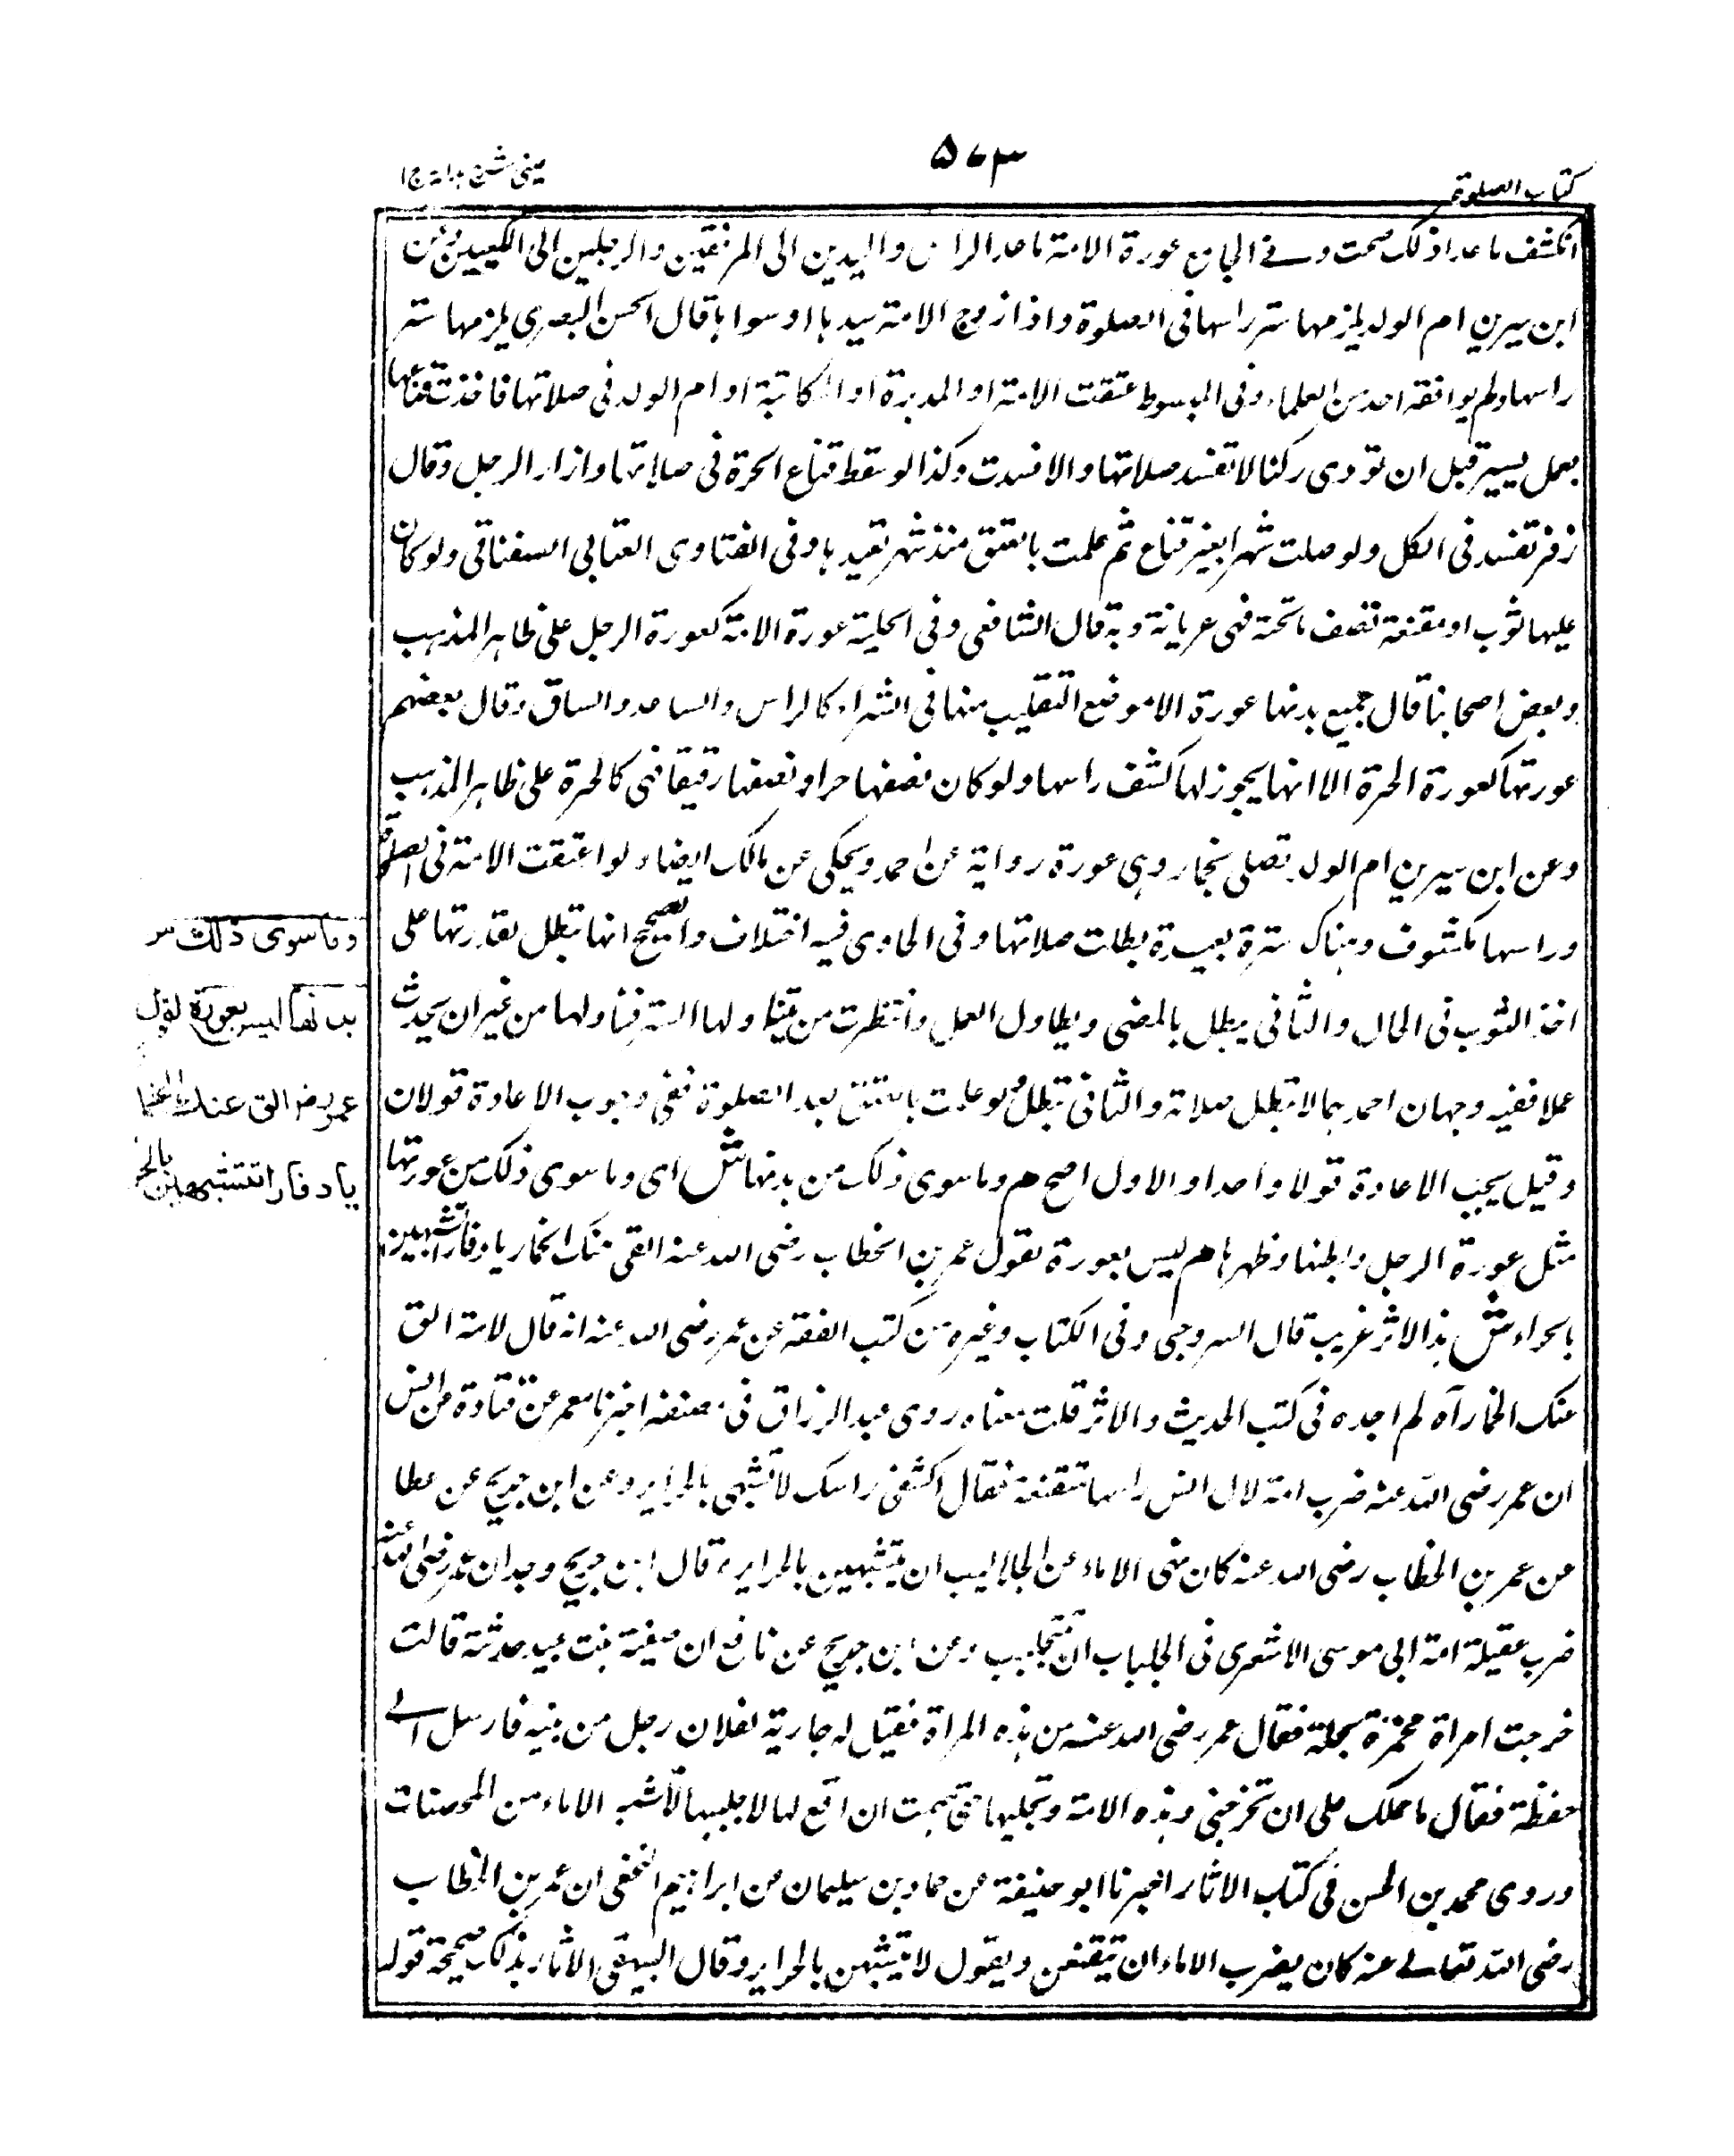 كتاب الصلوة
٥٧٣
عينى شرح هداية ج ١
انكشف ما عدا ذلك صحت وفي الجامع عورة الامة ما عدا الراس واليدين الى المرفقين والرجلين الى الكعبين وعن
ابن سيرين ام الولد يلزمها ستر راسها فى الصلوة واذا زوج الامة سيدها او سواها قال الحسن البصرى يلزمها ستر
راسها ولم يوافقه احد من العلماء وفى المبسوط عتقت الامة او المدبرة او المكاتبة او ام الولد فى صلاتها فاخذت قناعها
بعمل يسير قبل ان تودى ركنا لا تفسد صلاتها والا فسدت وكذا لو سقط قناع الحرة فى صلاتها وازار الرجل وقال
زفر تفسد فى الكل ولو صلت شهرا بغير قناع ثم علمت بالعتق منذ شهر تعيدها وفى الفتاوى العتابى السغناقى ولو كان
عليها ثوب او مقنعة تصف ما تحته فهى عريانة وبه قال الشافعى وفى الحلية عورة الامة كعورة الرجل على ظاهر المذهب
وبعض اصحابنا قال جميع بدنها عورة الا موضع التقليب منها فى الشراء كالراس والساعد والساق وقال بعضهم
عورتها كعورة الحرة الا انها يجوز لها كشف راسها ولو كان نصفها حرا ونصفها رقيقا فهى كالحرة على ظاهر المذهب
وعن ابن سيرين ام الولد تصلى بخمار وهى عورة رواية عن احمد ويحكى عن مالك ايضا ولو اعتقت الامة فى الصلوة
وراسها مكشوف وهناك سترة بعيدة بطلت صلاتها وفى الحاوى فيه اختلاف والصحيح انها تبطل بقدرتها على
اخذ الثوب فى الحال والثانى يبطل بالمضى ويطاول العمل وانتظرت من يناولها السترة فناولها من غير ان يحدث
عملا ففيه وجهان احدهما لا تبطل صلاته والثانى تبطل ولو علمت بالعتق بعد الصلوة ففى وجوب الاعادة قولان
وقيل يجب الاعادة قولا واحدا والاول اصح م وما سوى ذلك من بدنها ش اى وما سوى ذلك من عورتها
مثل عورة الرجل وبطنها وظهرها م ليس بعورة لقول عمر بن الخطاب رضى الله عنه القى عنك الخمار يا دفار اتتشبهين
بالحرائر ش هذا الاثر غريب قال السروجى وفى الكتاب وغيره من كتب الفقه عن عمر رضى الله عنه انه قال لامة الق
عنك الخمار آه لم اجده فى كتب الحديث والاثر قلت معناه روى عبد الرزاق فى مصنفه اخبرنا معمر عن قتادة عن انس
ان عمر رضى الله عنه ضرب امة لال انس راسها متقنعة فقال اكشفى راسك لا تشبهى بالحراير وعن ابن جريج عن عطا
عن عمر بن الخطاب رضى الله عنه كان ينهى الاماء من الجلاليب ان يتشبهين بالحراير قال ابن جريج وحدث ان عمر رضى الله عنه
ضرب عقيلة امة ابى موسى الاشعرى فى الجلباب ان تتجلبب وعن ابن جريج عن نافع ان صفية بنت عبيد حدثته قالت
خرجت امراة مختمرة متجلببة فقال عمر رضى الله عنه من هذه المراة فقيل له جارية لفلان رجل من بنيه فارسل الى
حفظة فقال ما حملك على ان تخرجى هذه الامة وتجلبيها حتى هممت ان اقع لها لا جلبيها لا تشبه الاماء من المحصنات
وروى محمد بن الحسن فى كتاب الاثار اخبرنا ابو حنيفة عن حماد بن سليمان عن ابراهيم النخعى ان عمر بن الخطاب
رضى الله تعالى عنه كان يضرب الاماء ان يتقنعن ويقول لا يتشبهن بالحراير وقال البيهقى الاثار بذلك صحيحة قوله
وما سوى ذلك من
بدنها ليس بعورة لقول
عمر رضى الق عنك الخما
يا دفار اتتشبهين بالحر